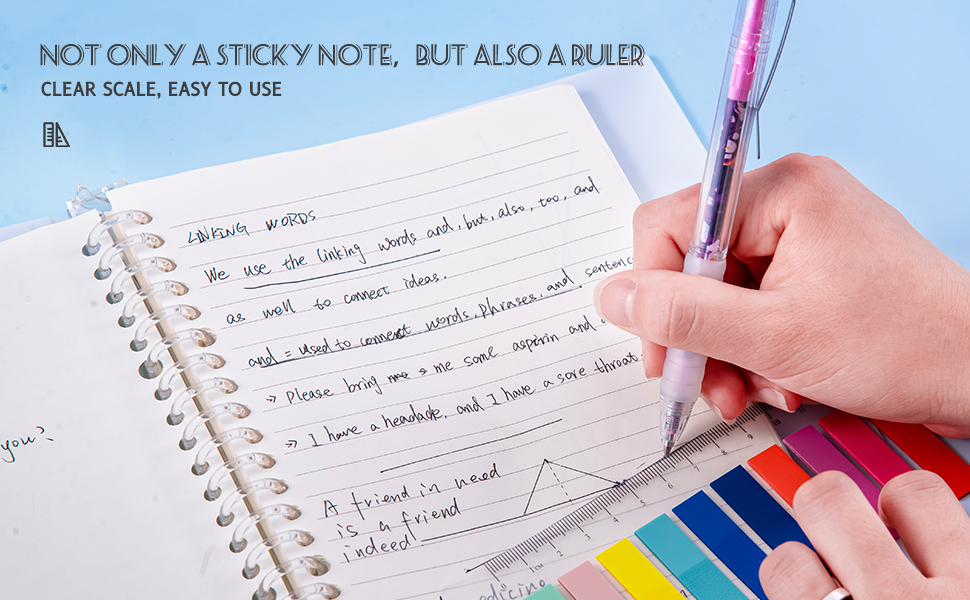 NOT ONLY A STICKY NOTE, BUT ALSO A RULER
CLEAR SCALE, EASY TO USE
LINKING WORDS
We use the linking words and, but, also, too, and
as well to connect ideas.
and = used to connect words, phrases, and sentenc
⇒ Please bring me some aspirin and
⇒ I have a headache, and I have a sore throat.
A friend in need
is a friend
indeed.
you?
0 1CM 2 3 4 5 6 7 8 9
edicine